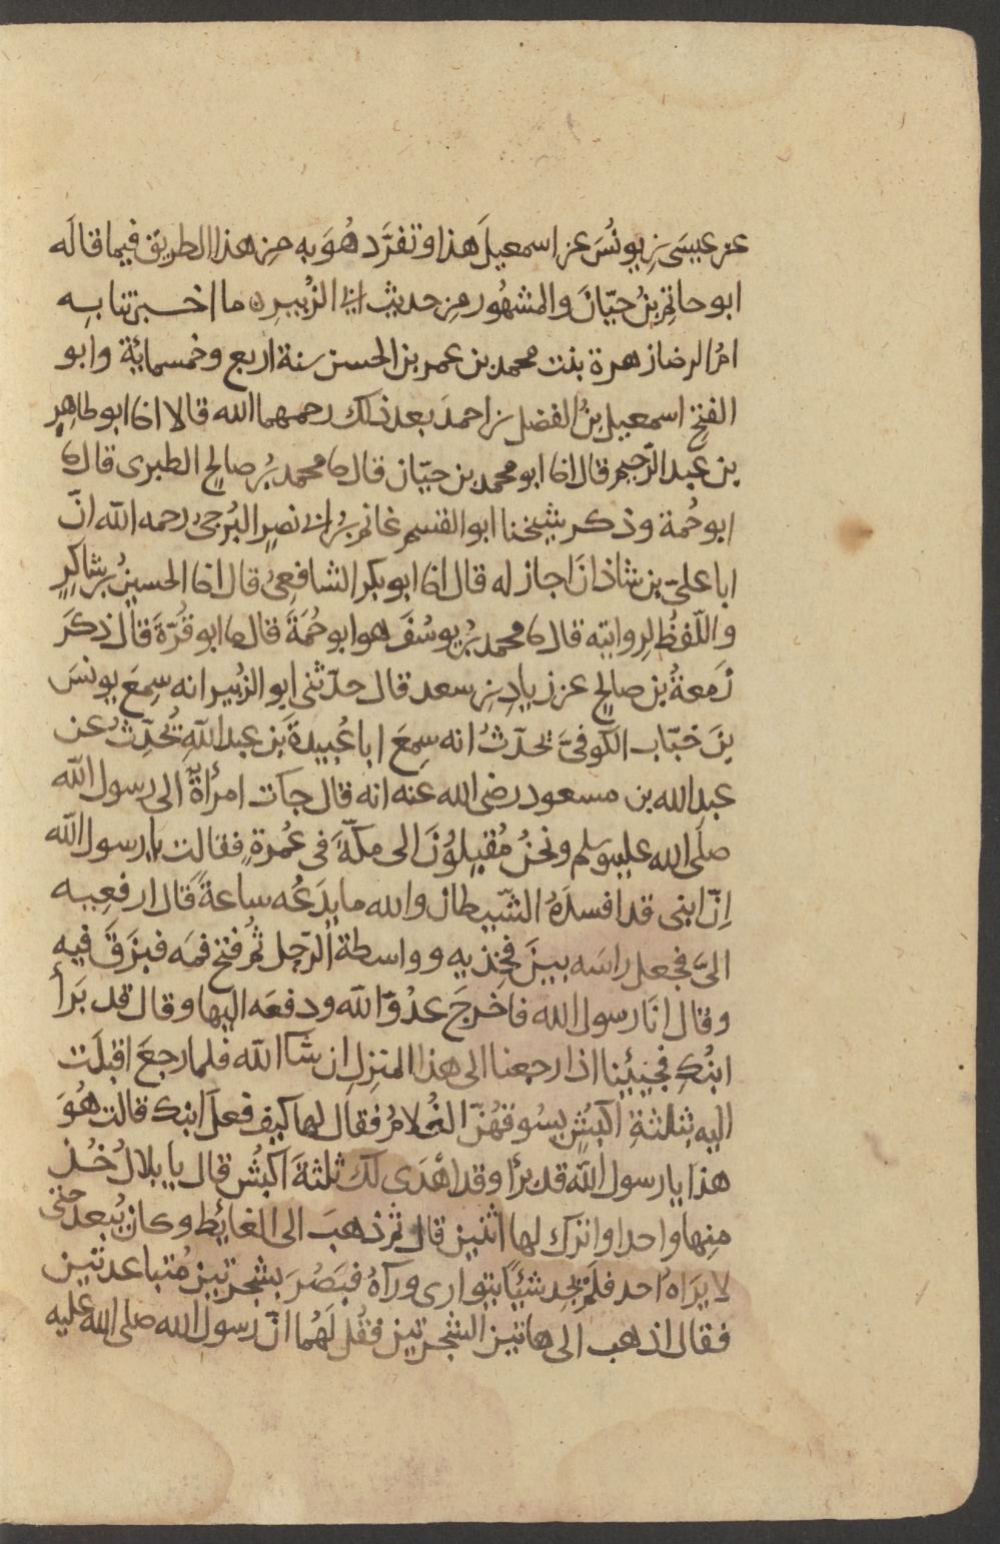 عن عيسى بن يونس عن اسمعيل هذا وتفرد هو به من هذا الطريق فيما قاله
ابو حاتم بن حيّان والمشهور من حديث ابي الزبير ما اخبرتنا به
ام الرضا زهرة بنت محمد بن عمر بن الحسن سنة اربع وخمسمائة وابو
الفتح اسمعيل بن الفضل بن احمد بعد ذلك رحمهما الله قالا انا ابو طاهر
بن عبد الرحيم قال انا ابو محمد بن حيّان قال نا محمد بن صالح الطبرى قال نا
ابو حُمة وذكر شيخنا ابو القسم غانم بن ابي نصر البُرجى رحمه الله انّ
ابا على بن شاذان اجاز له قال انا ابو بكر الشافعى قال انا الحسين بن شاكر
واللّفظُ لروايته قال نا محمد بن يوسُفَ هو ابو حُمَةَ قال نا ابو قُرّةَ قال ذكرَ
زَمعةُ بن صالح عن زياد بن سعد قال حدّثنى ابو الزبير انه سمعَ يونسَ
بنَ خبّاب الكوفىَّ يحدّثُ انه سمعَ ابا عُبيدةَ بن عبد اللهِ يُحدّثُ عن
عبد الله بن مسعود رضى الله عنه انه قال جات امرأةٌ الى رسول الله
صلى الله عليه وسلم ونحنُ مُقبِلوُنَ الى مكّةَ فى عُمرةٍ فقالت يا رسول الله
اِنّ ابنى قد افسدَهُ الشّيطان والله ما يدَعُه ساعةً قال ارفعِيه
الىّ فجعل راسَه بينَ فخِذيه وواسطة الرّحل ثمّ فتح فمَه فبزَقَ فيه
وقال انَا رسول الله فاخرجَ عدُوّ الله ودفعَه اليها وقال قد بَرأ
ابنُكِ فجيئينا اذا رجعنا الى هذا المنزِل ان شآ الله فلما رجعَ اقبلَت
اليه بثلثةِ اكبُشٍ يسُوقهُنّ الغُلامُ فقال لها كيف فعلَ ابنك قالت هُوَ
هذا يا رسول الله قد برأ وقد اهْدَى لك ثلثةَ اكبُش قال يا بلالُ خُذ
مِنها واحدا واترك لها اثنين قال ثم ذهبَ الى الغائِط وكان يُبعد حتى
لا يرَاهُ احد فلم يجِد شيئًا يتوارى ورآهُ فبَصُرَ بشجرتين مُتباعدتين
فقال اذهب الى هاتين الشجرتين فقُل لَهُما انّ رسول الله صلى الله عليه